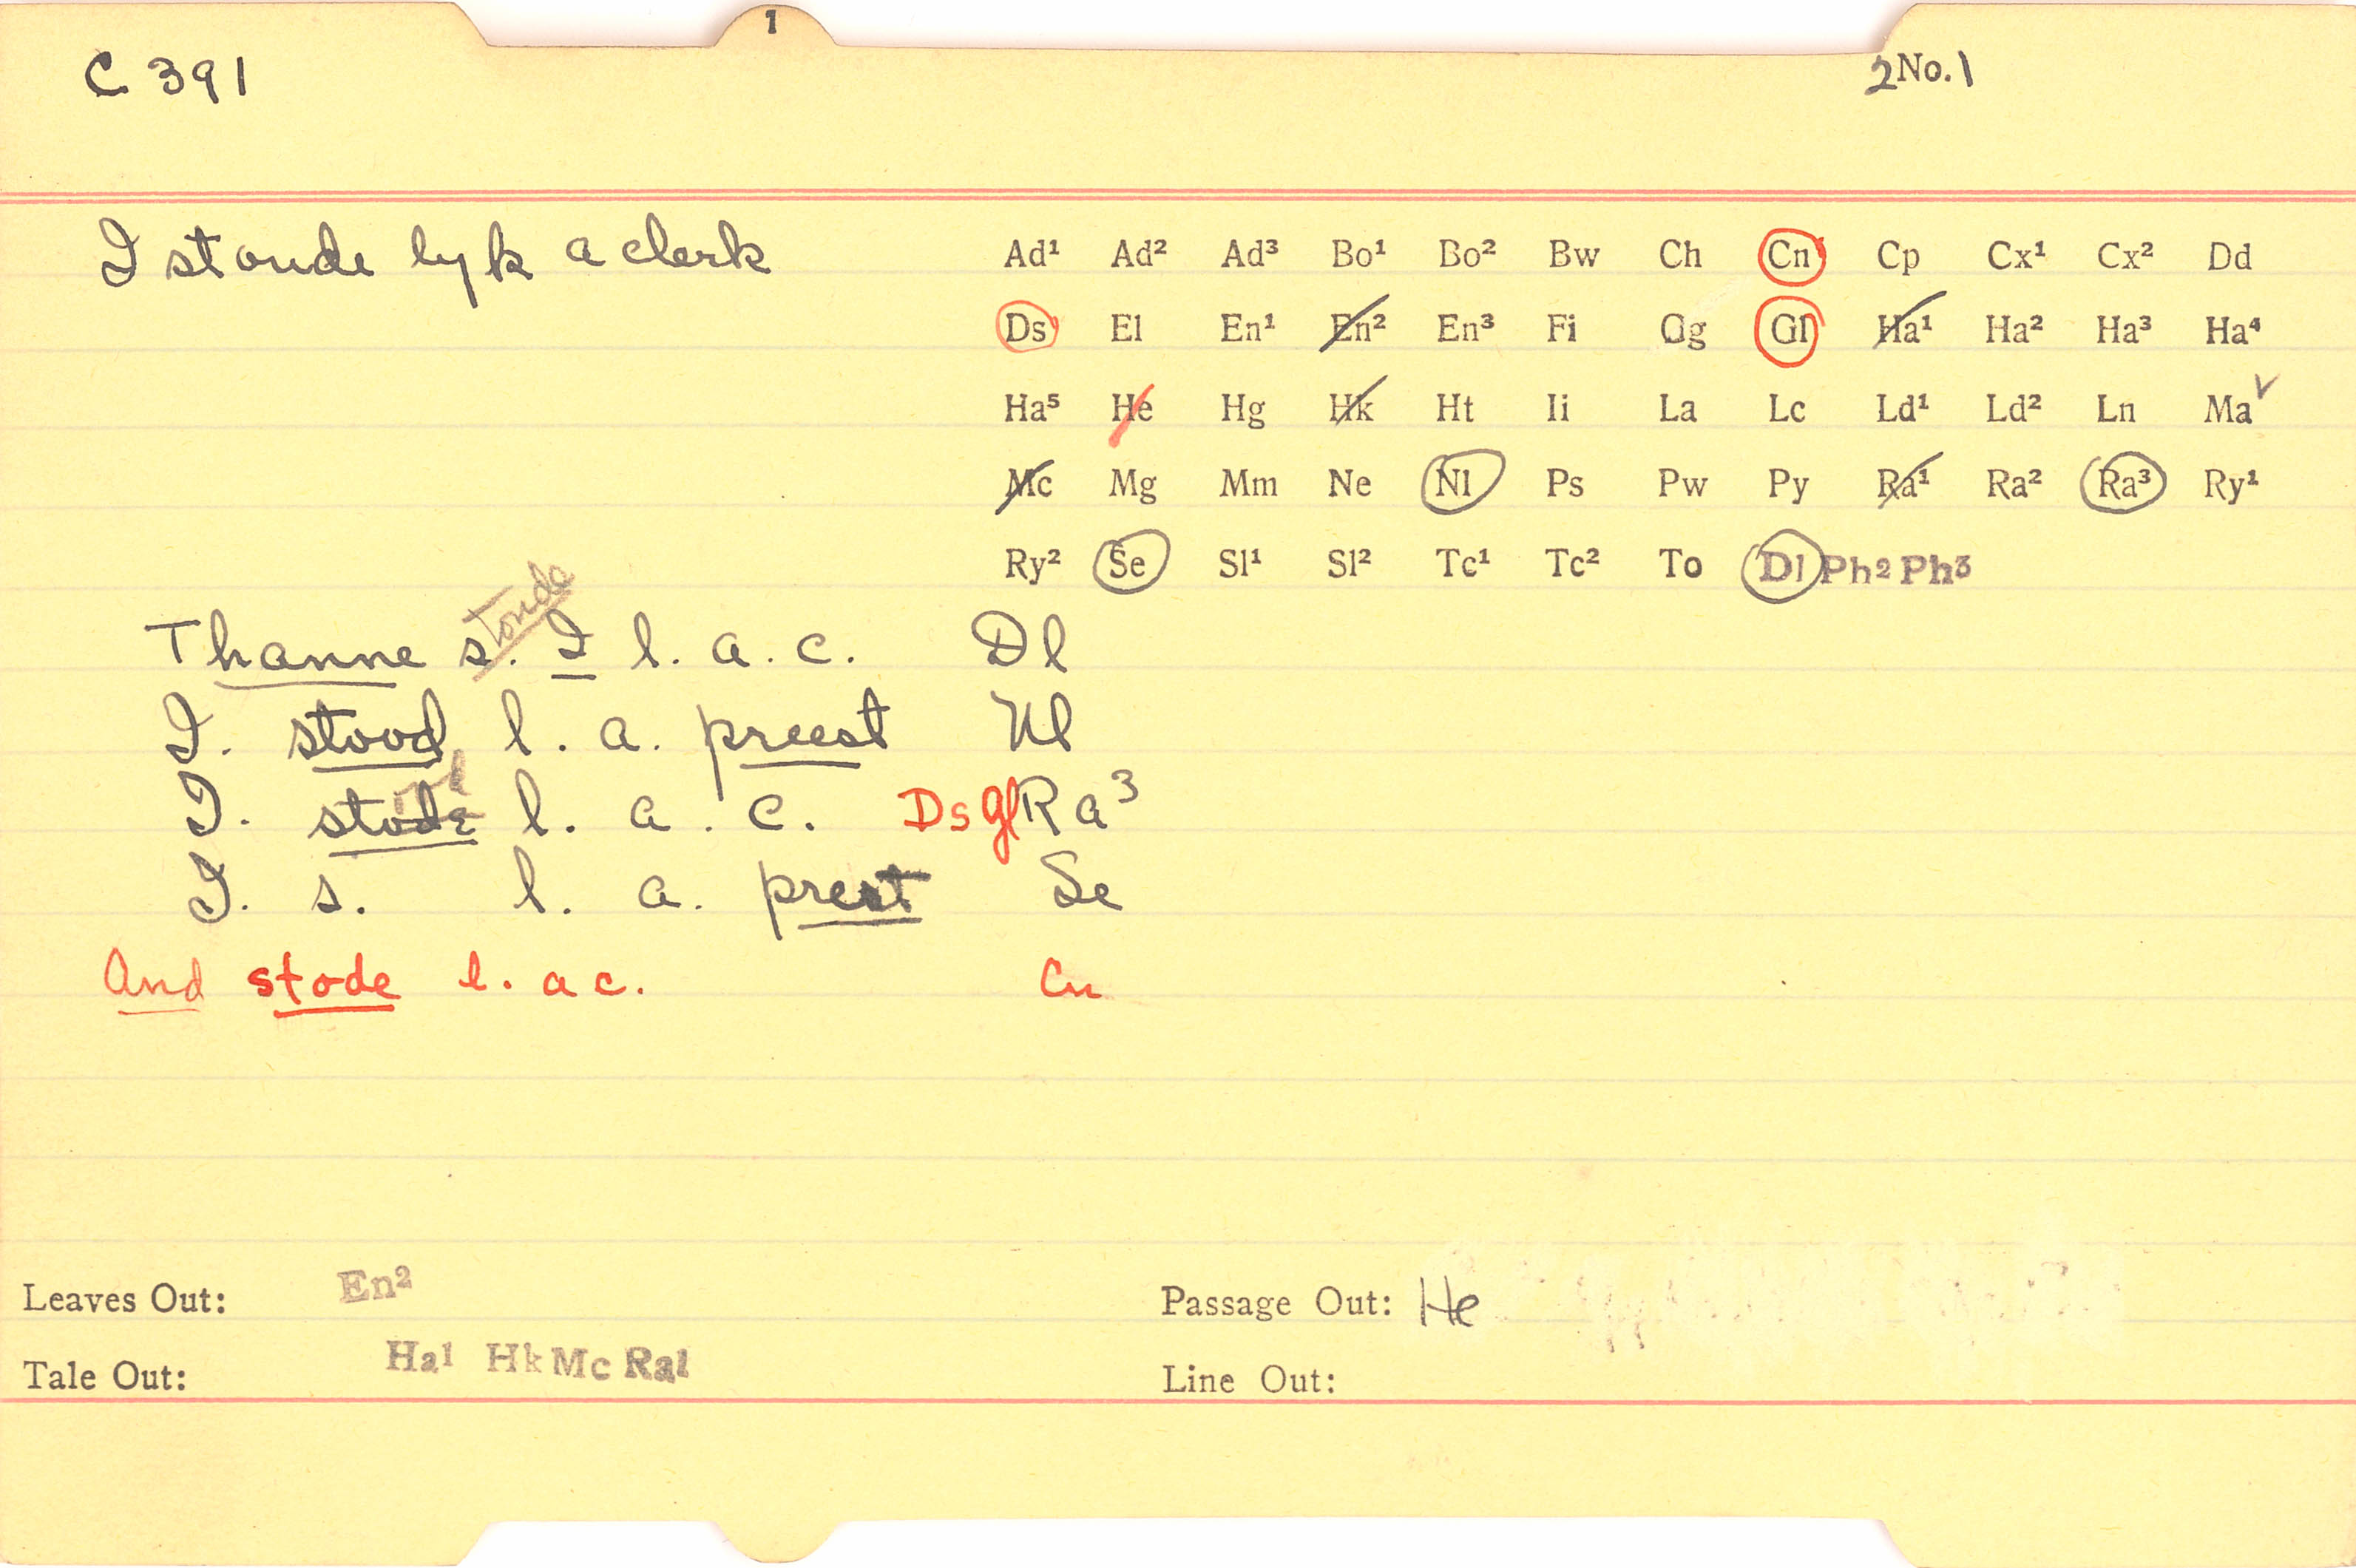 1
C 391
2 No. 1
I stonde lyk a clerk
Ad¹ Ad² Ad³ Bo¹ Bo² Bw Ch Cn Cp Cx¹ Cx² Dd
Ds El En¹ En² En³ Fi Gg Gl Ha¹ Ha² Ha³ Ha⁴
Ha⁵ He Hg Hk Ht Ii La Lc Ld¹ Ld² Ln Ma
Mc Mg Mm Ne Nl Ps Pw Py Ra¹ Ra² Ra³ Ry¹
Ry² Se Sl¹ Sl² Tc¹ Tc² To Dl Ph² Ph³
stonde
Thanne s. I l. a. c. Dl
I. stood l. a. preest Nl
I. stode l. a. c. Ds Gl Ra³
I. s. l. a. prest Se
And stode l. a c. Cn
Leaves Out: En²
Passage Out: He
Tale Out: Ha¹ Hk Mc Ra¹
Line Out: